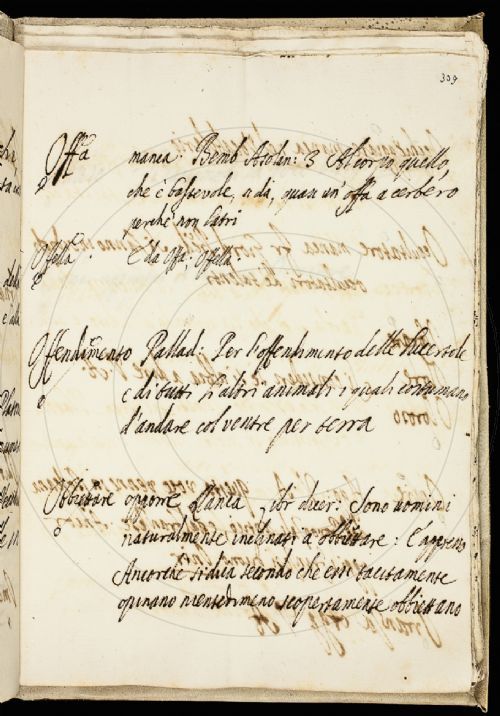 309
Offa manca. Bemb Asolan: 3 Al corpo quello,
che è bastevole, si dà, quasi un' offa a cerbero
perche non latri
Offella. E da Offa; Offella
Offendimento Pallad: Per l'offendimento delle lucertole
e di tutti gl'altri animali i quali costumano
d'andare col ventre per terra
Obbiettare opporre manca libr dicer: Sono uomini
naturalmente inclinati a obbiettare: E appresso
Ancorche si dica secondo che essi tacitamente
opinano nientedimeno scopertamente obbiettano